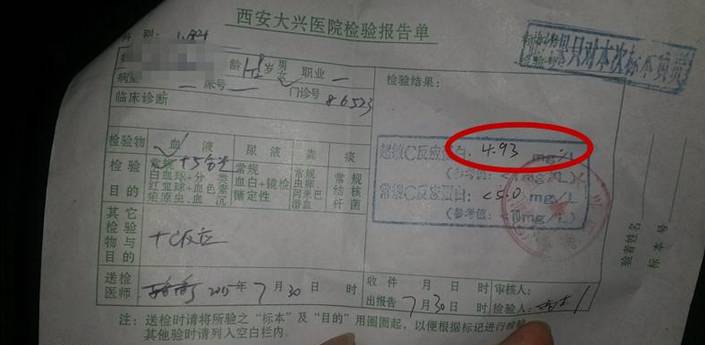 西安大兴医院检验报告单
结果只对本次标本负责
龄 岁 男 女 职业 一
病室 床号 一 门诊号 86523
临床诊断
检验结果:
检验物 血液 尿液 粪 痰
检验目的
常规+5分类 常规 常规 常规
白血球+分类 蛋白+镜检 虫卵 结核
红血球+血色素 糖定性 阿米巴 杆菌
疟原虫 血沉 潜血
其它检验物与目的
十C反应
超敏C反应蛋白: 4.93 mg/L
(参考值: mg/L)
常规C反应蛋白: <5.0 mg/L
(参考值: <10mg/L)
验者姓名
标本号
送检医师 2015年7月30日 时
收件 月 日 时 审核人:
出报告 7月30日 时 检验人:
注: 送检时请将所验之“标本”及“目的”用圈圈起, 以便根据标记进行检验
其他验时请列入空白栏内.